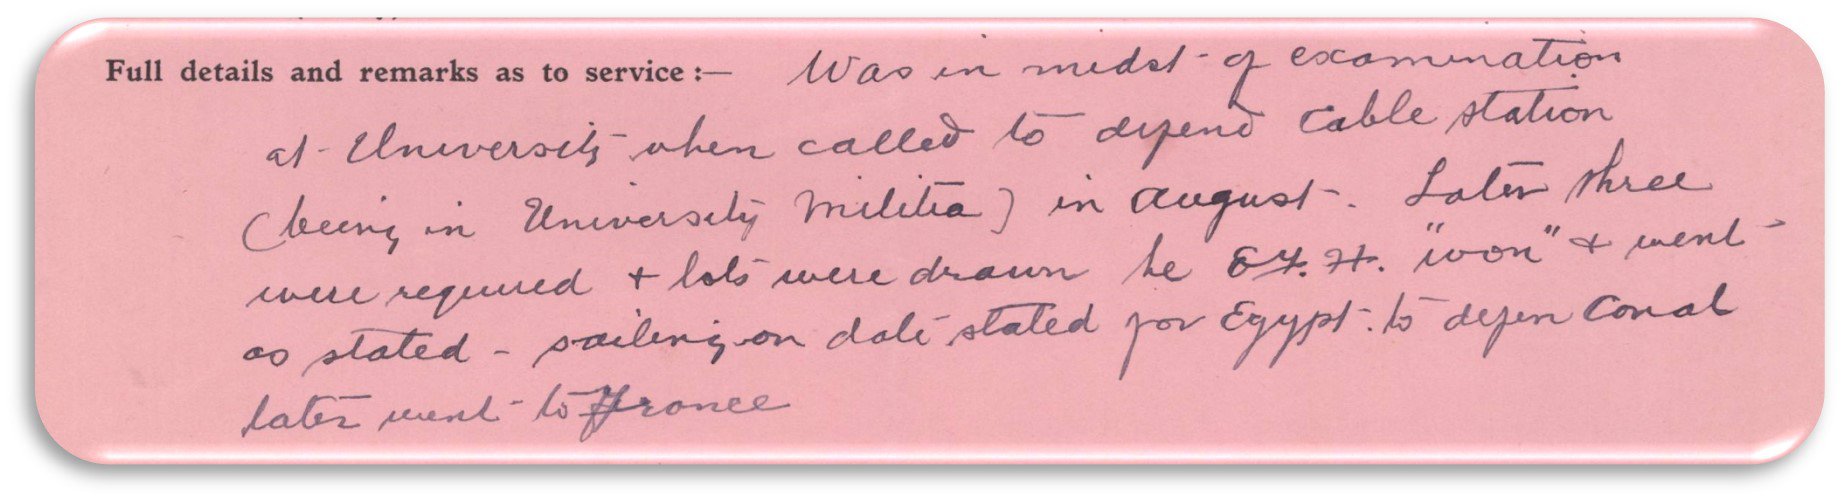 Full details and remarks as to service :— Was in midst of examination
at University when called to defend Cable station
(being in University Militia) in August. Later three
were required + lots were drawn he "won" + went
as stated - sailing on date stated for Egypt. to defen Canal
later went to France